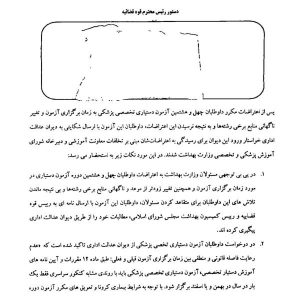 دستور رئیس محترم قوه قضائیه
پس از اعتراضات مکرر داوطلبان چهل و هشتمین آزمون دستیاری تخصصی پزشکی به زمان برگزاری آزمون و تغییر
ناگهانی منابع برخی رشته‌ها و به نتیجه نرسیدن این اعتراضات، داوطلبان این آزمون با ارسال شکایتی به دیوان عدالت
اداری خواستار ورود این دیوان برای رسیدگی به اعتراضات‌شان مبنی بر تخلفات معاونت آموزشی و دبیرخانه شورای
آموزش پزشکی و تخصصی وزارت بهداشت شدند. در این مورد نکات زیر به استحضار می رسد:
۱. در پی بی توجهی مسئولان وزارت بهداشت به اعتراضات داوطلبان چهل و هشتمین دوره آزمون دستیاری در
مورد زمان برگزاری آزمون و همچنین تغییر زودتر از موعد و ناگهانی منابع برخی رشته‌ها و بی نتیجه ماندن
تلاش های این داوطلبان برای متقاعد کردن مسئولان، داوطلبان این آزمون با ارسال نامه ای به رییس قوه
قضاییه و رییس کمیسیون بهداشت مجلس شورای اسلامی، مطالبات خود را از طریق دیوان عدالت اداری
پیگیری کرده اند.
۲. در درخواست داوطلبان آزمون دستیاری تخصصی پزشکی از دیوان عدالت اداری تاکید شده است که «عدم
رعایت فاصله قانونی و منطقی بین زمان برگزاری آزمون قبلی و فعلی؛ طبق ماده ۱۲ مقررات و آیین نامه
آموزش دستیار تخصصی، آزمون دستیاری تخصصی پزشکی باید با روندی مشابه کنکور سراسری فقط یک
بار در سال در بهمن و یا اسفند برگزار شود. با توجه به شرایط بیماری کرونا و تعویق های مکرر آزمون دوره